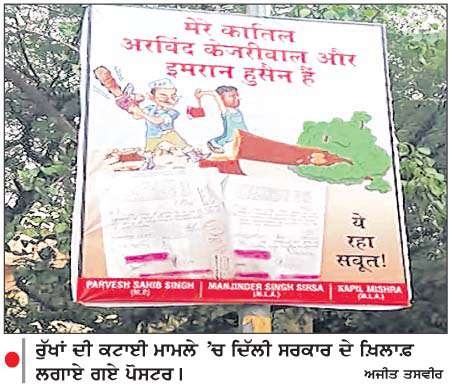 मेरे कातिल
अरविंद केजरीवाल और
इमरान हुसैन हैं
ये
रहा
सबूत!
PARVESH SAHIB SINGH (M.P.) | MANJINDER SINGH SIRSA (M.L.A.) | KAPIL MISHRA (M.L.A.)
ਰੁੱਖਾਂ ਦੀ ਕਟਾਈ ਮਾਮਲੇ 'ਚ ਦਿੱਲੀ ਸਰਕਾਰ ਦੇ ਖ਼ਿਲਾਫ਼
ਲਗਾਏ ਗਏ ਪੋਸਟਰ। ਅਜੀਤ ਤਸਵੀਰ